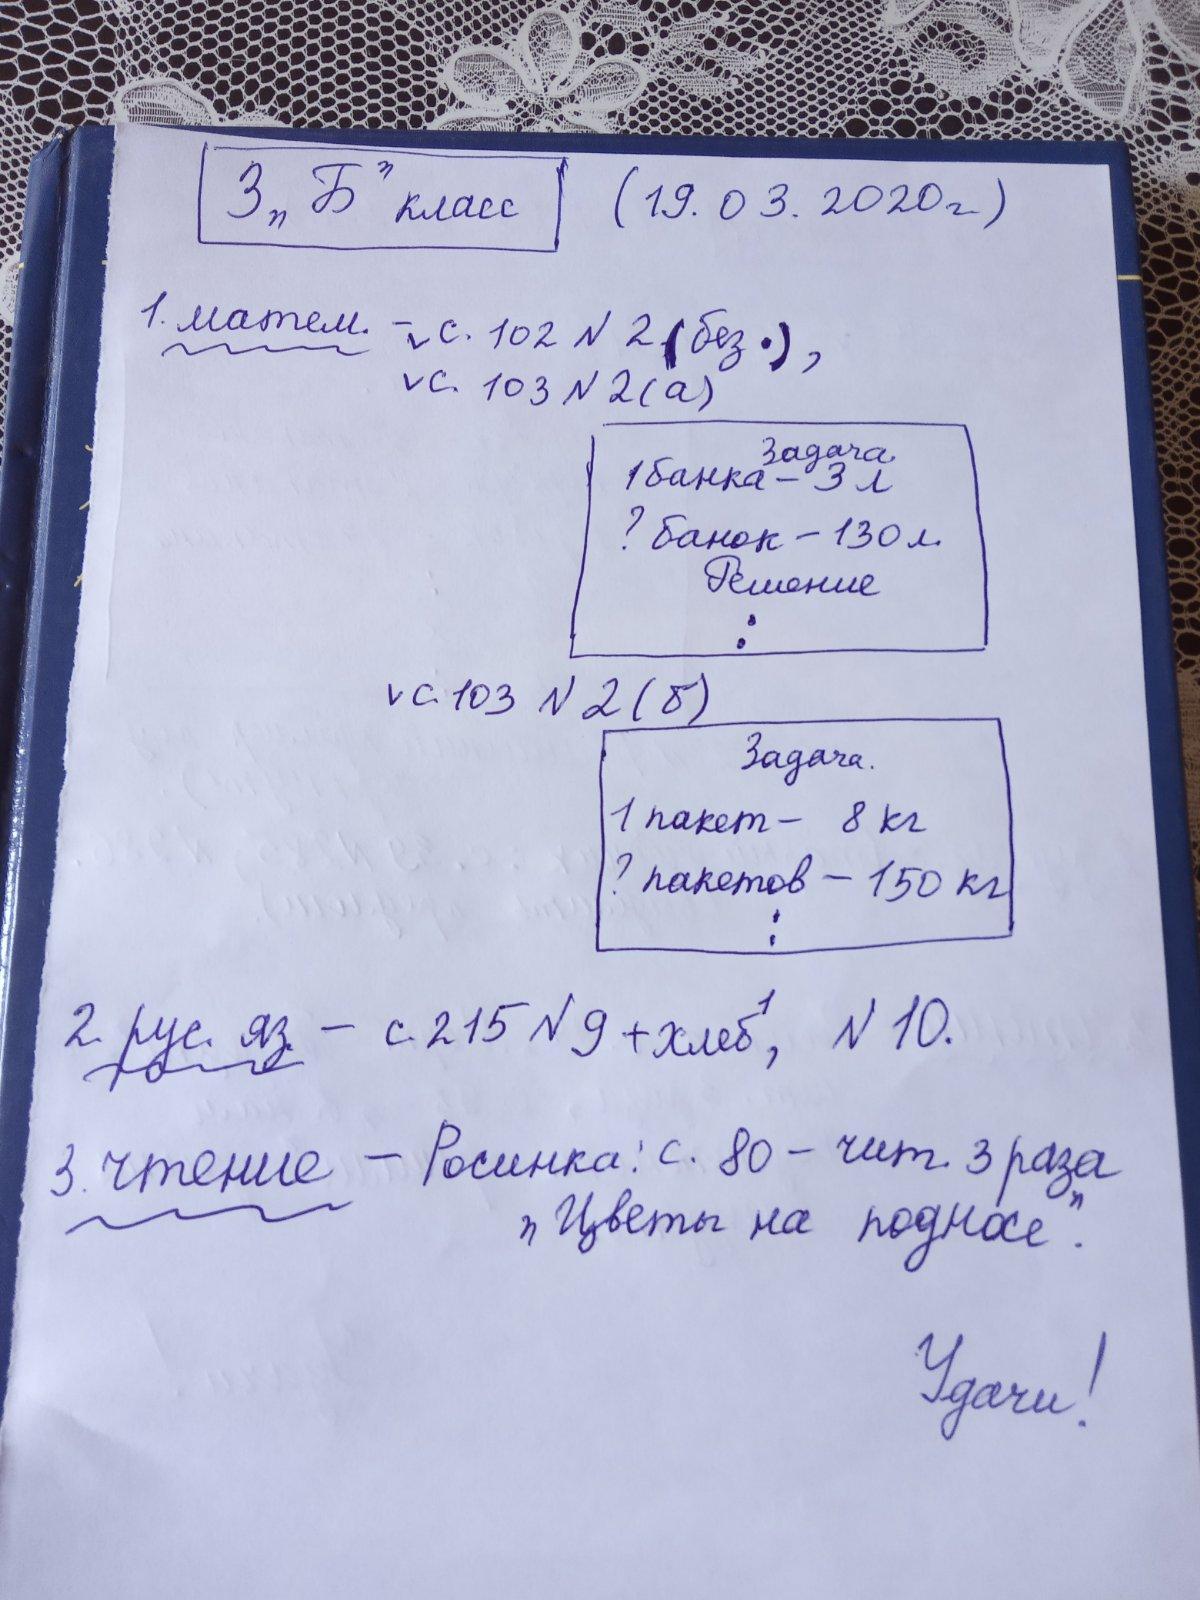 3 „Б" класс (19.03.2020г.)
1. матем. – ᵥ с. 102 N 2 (без •),
ᵥ с. 103 N 2 (а)
Задача.
1 банка – 3 л
? банок – 130 л.
Решение
:
ᵥ с. 103 N 2 (б)
Задача.
1 пакет – 8 кг
? пакетов – 150 кг
:
2. рус. яз. – с. 215 N 9 + хлеб¹, N 10.
3. чтение – Росинка: с. 80 – чит. 3 раза
„Цветы на подносе".
Удачи!